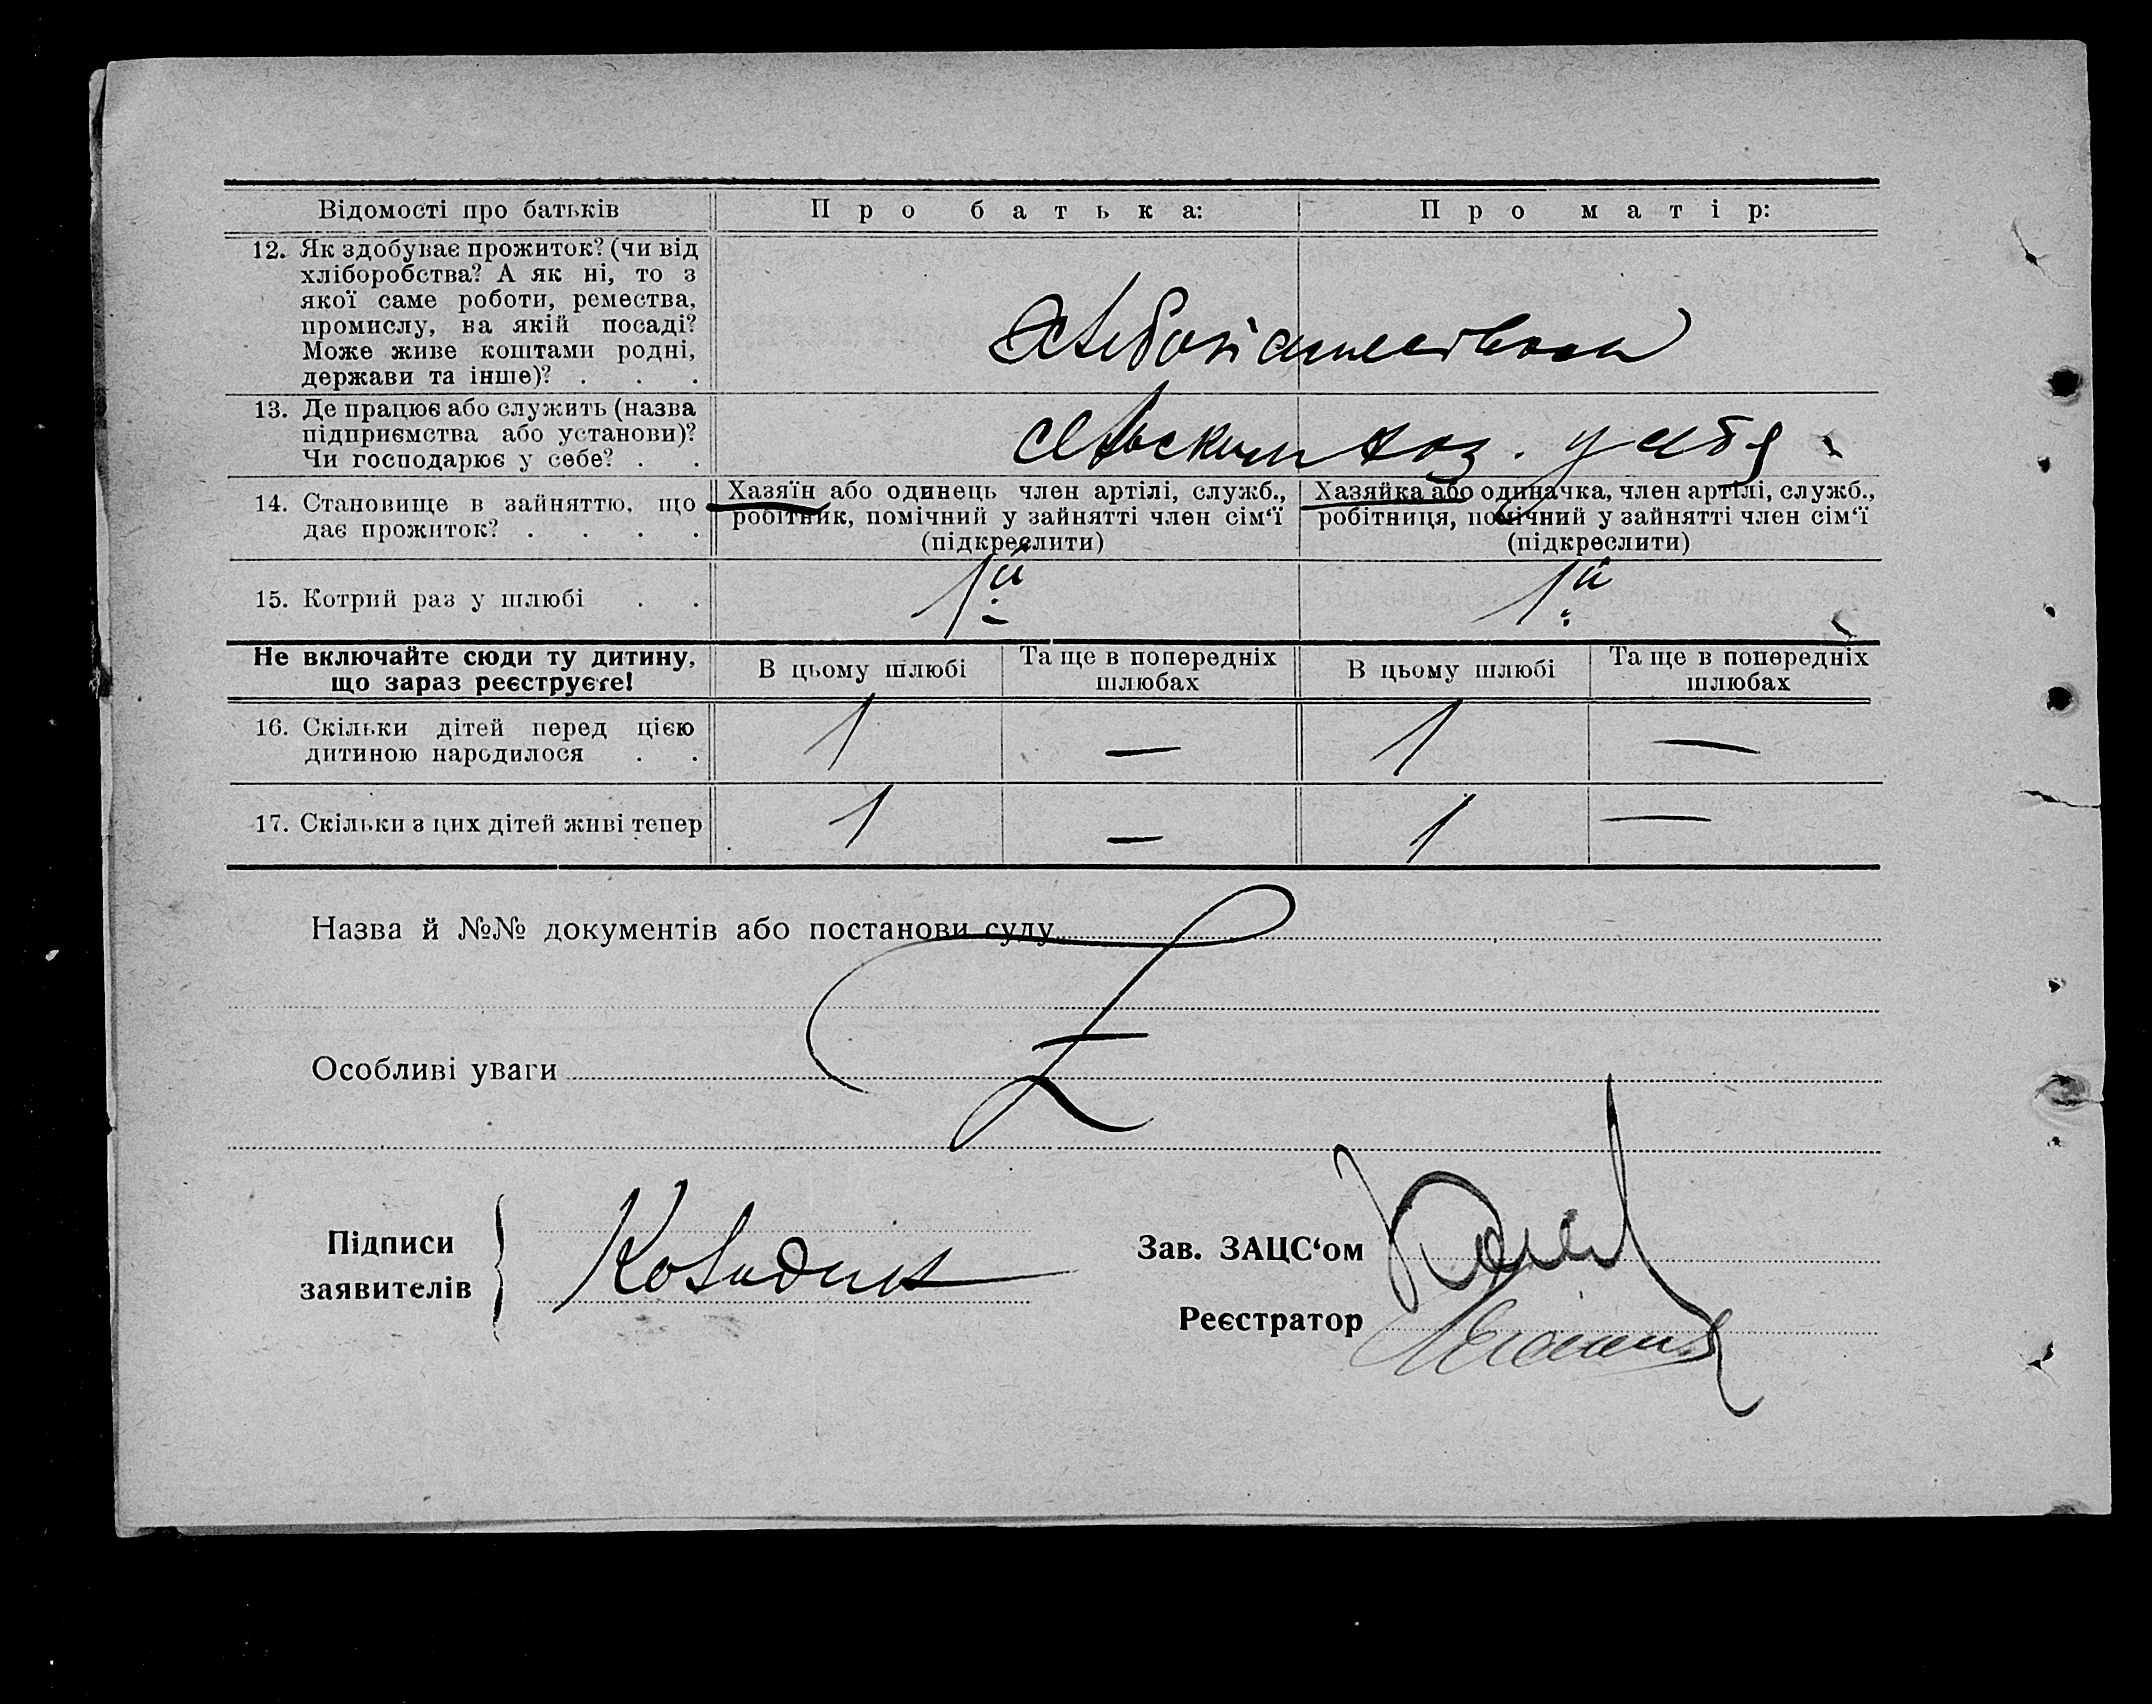 Відомості про батьків
Про батька:
Про матір:
12. Як здобуває прожиток? (чи від
хліборобства? А як ні, то з
якої саме роботи, ремества,
промислу, на якій посаді?
Може живе коштами родні,
держави та інше)? . . .
Хлебопашеством
13. Де працює або служить (назва
підприємства або установи)?
Чи господарює у себе? . .
сельским хоз. у себя
14. Становище в зайняттю, що
дає прожиток? . . . .
Хазяїн або одинець член артілі, служб.,
робітник, помічний у зайнятті член сім‘ї
(підкреслити)
Хазяйка або одиначка, член артілі, служб.,
робітниця, помічний у зайнятті член сім‘ї
(підкреслити)
15. Котрий раз у шлюбі . .
1й
1й
Не включайте сюди ту дитину,
що зараз реєструєте!
В цьому шлюбі
Та ще в попередніх
шлюбах
В цьому шлюбі
Та ще в попередніх
шлюбах
16. Скільки дітей перед цією
дитиною народилося . .
1 — 1 —
17. Скільки з цих дітей живі тепер
1 — 1 —
Назва й №№ документів або постанови суду
Особливі уваги
Підписи
заявителів
Зав. ЗАЦС‘ом
Реєстратор